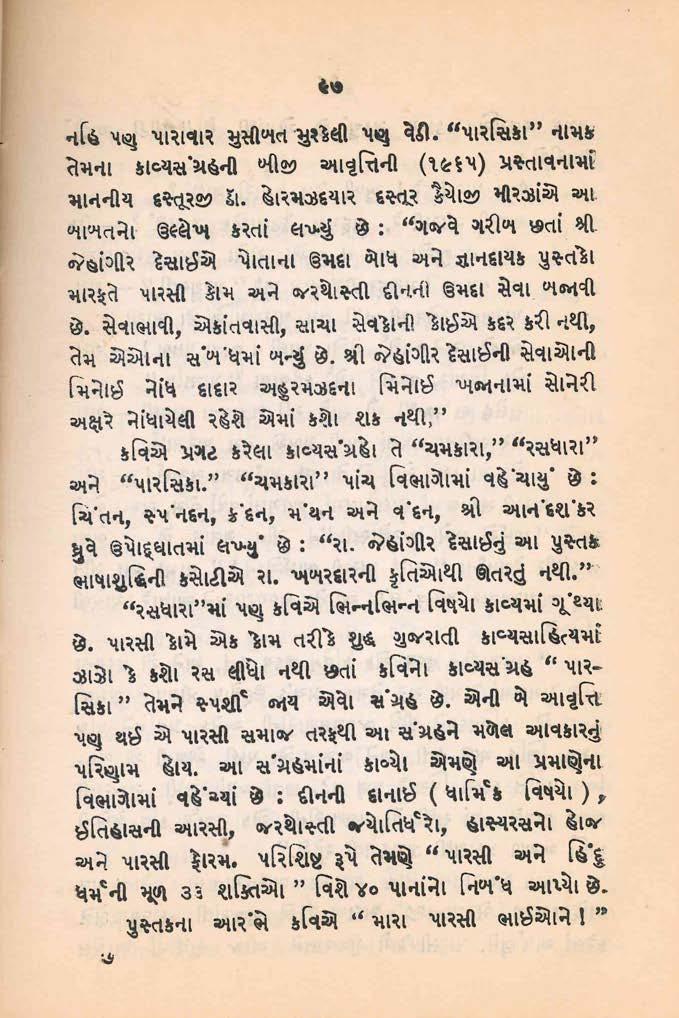 ૯૭
નહિ પણ પારાવાર મુસીબત મુશ્કેલી પણ વેઠી. “પારસિકા” નામક
તેમના કાવ્યસંગ્રહની બીજી આવૃત્તિની (૧૯૬૫) પ્રસ્તાવનામાં
માનનીય દસ્તૂરજી ડૉ. હોરમઝદયાર દસ્તૂર કૈયોજી મીરઝાંએ આ
બાબતનો ઉલ્લેખ કરતાં લખ્યું છે : “ગજવે ગરીબ છતાં શ્રી
જેહાંગીર દેસાઈએ પોતાના ઉમદા બોધ અને જ્ઞાનદાયક પુસ્તકો
મારફતે પારસી કોમ અને જરથોસ્તી દીનની ઉમદા સેવા બજાવી
છે. સેવાભાવી, એકાંતવાસી, સાચા સેવકોની કોઈએ કદર કરી નથી,
તેમ એઓના સંબંધમાં બન્યું છે. શ્રી જેહાંગીર દેસાઈની સેવાઓની
મિનોઈ નોંધ દાદાર અહુરમઝદના મિનોઈ ખજાનામાં સોનેરી
અક્ષરે નોંધાયેલી રહેશે એમાં કશો શક નથી.”
કવિએ પ્રગટ કરેલા કાવ્યસંગ્રહો તે “ચમકારા,” “રસધારા”
અને “પારસિકા.” “ચમકારા” પાંચ વિભાગોમાં વહેંચાયું છે :
ચિંતન, સ્પંનદન, ક્રંદન, મંથન અને વંદન, શ્રી આનંદશંકર
ધ્રુવે ઉપોદ્ઘાતમાં લખ્યું છે : “રા. જેહાંગીર દેસાઈનું આ પુસ્તક
ભાષાશુદ્ધિની કસોટીએ રા. ખબરદારની કૃતિઓથી ઊતરતું નથી.”
“રસધારા”માં પણ કવિએ ભિન્નભિન્ન વિષયો કાવ્યમાં ગૂંથ્યા
છે. પારસી કોમે એક કોમ તરીકે શુદ્ધ ગુજરાતી કાવ્યસાહિત્યમાં
ઝાઝો કે કશો રસ લીધો નથી છતાં કવિનો કાવ્યસંગ્રહ “ પાર-
સિકા ” તેમને સ્પર્શી જાય એવો સંગ્રહ છે. એની બે આવૃત્તિ
પણ થઈ એ પારસી સમાજ તરફથી આ સંગ્રહને મળેલ આવકારનું
પરિણામ હોય. આ સંગ્રહમાંનાં કાવ્યો એમણે આ પ્રમાણેના
વિભાગોમાં વહેંચ્યાં છે : દીનની દાનાઈ ( ધાર્મિક વિષયો ),
ઈતિહાસની આરસી, જરથોસ્તી જ્યોતિર્ધરો, હાસ્યરસનો હોજ
અને પારસી ફોરમ. પરિશિષ્ટ રૂપે તેમણે “ પારસી અને હિંદુ
ધર્મની મૂળ ૩૩ શક્તિઓ ” વિશે ૪૦ પાનાંનો નિબંધ આપ્યો છે.
પુસ્તકના આરંભે કવિએ “ મારા પારસી ભાઈઓને ! ”